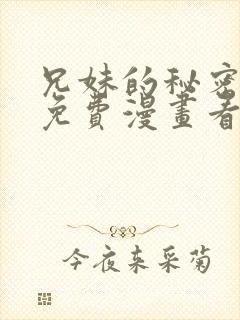 兄妹的秘密
免費漫畫看
今夜来采菊